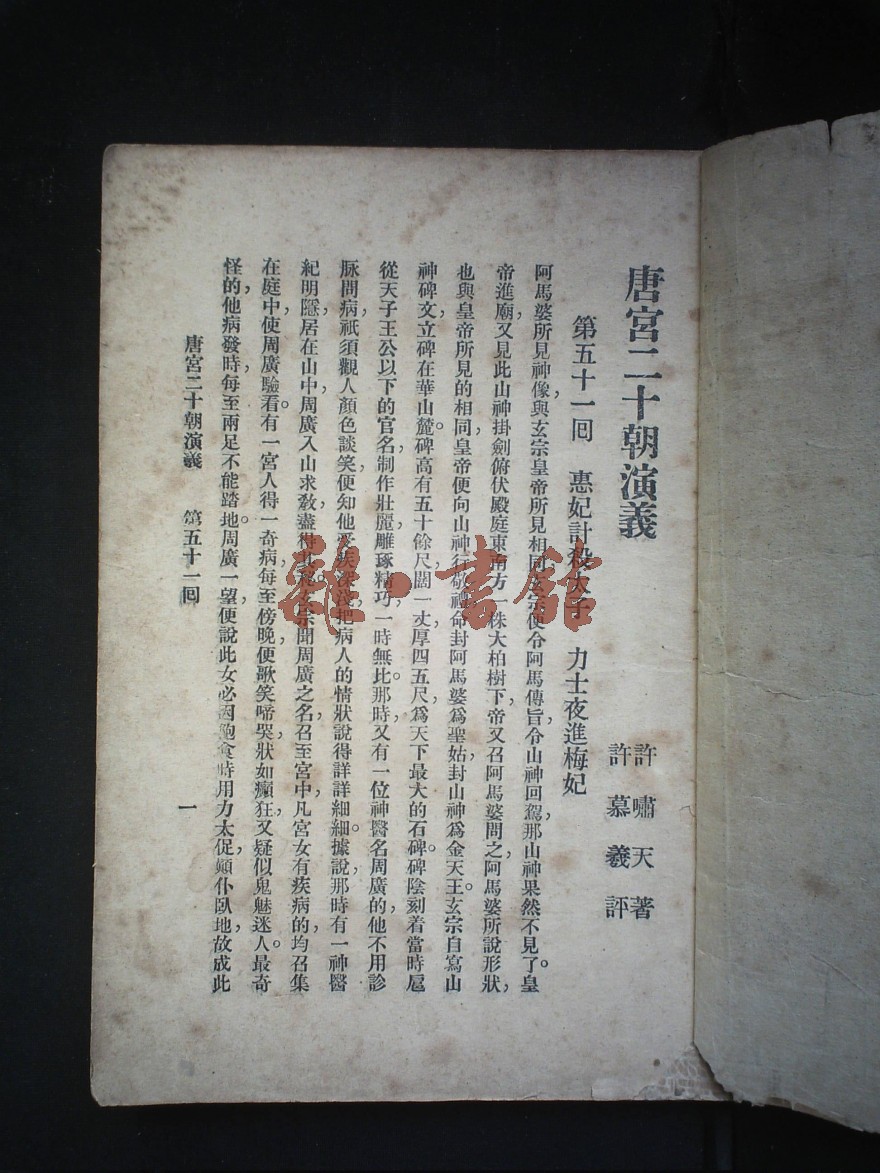 唐宮二十朝演義
許嘯天著
許慕羲評
第五十一囘　惠妃計殺太子　力士夜進梅妃
阿馬婆所見神像，與玄宗皇帝所見相同，玄宗便令阿馬傳旨，令山神回駕，那山神果然不見了。皇
帝進廟，又見此山神掛劍俯伏殿庭東南方一株大柏樹下，帝又召阿馬婆問之，阿馬婆所說形狀，
也與皇帝所見的相同，皇帝便向山神行敬禮，命封阿馬婆爲聖姑，封山神爲金天王。玄宗自寫山
神碑文，立碑在華山麓。碑高有五十餘尺，闊一丈，厚四五尺，爲天下最大的石碑。碑陰刻着當時扈
從天子王公以下的官名，制作壯麗，雕琢精巧，一時無比。那時又有一位神醫名周廣的，他不用診
脈問病，祇須觀人顏色談笑，便知他受疾深淺，把病人的情狀說得詳詳細細。據說那時有一神醫
紀明，隱居在山中，周廣入山求敎，盡得其秘。玄宗聞周廣之名，召至宮中，凡宮女有疾病的，均召集
在庭中，使周廣驗看。有一宮人得一奇病，每至傍晚，便歌笑啼哭，狀如癲狂，又疑似鬼魅迷人。最奇
怪的，他病發時，每至兩足不能踏地。周廣一望，便說此女必因飽食時用力太促，顚仆臥地，故成此
唐宮二十朝演義　第五十一囘
一
雜·書館